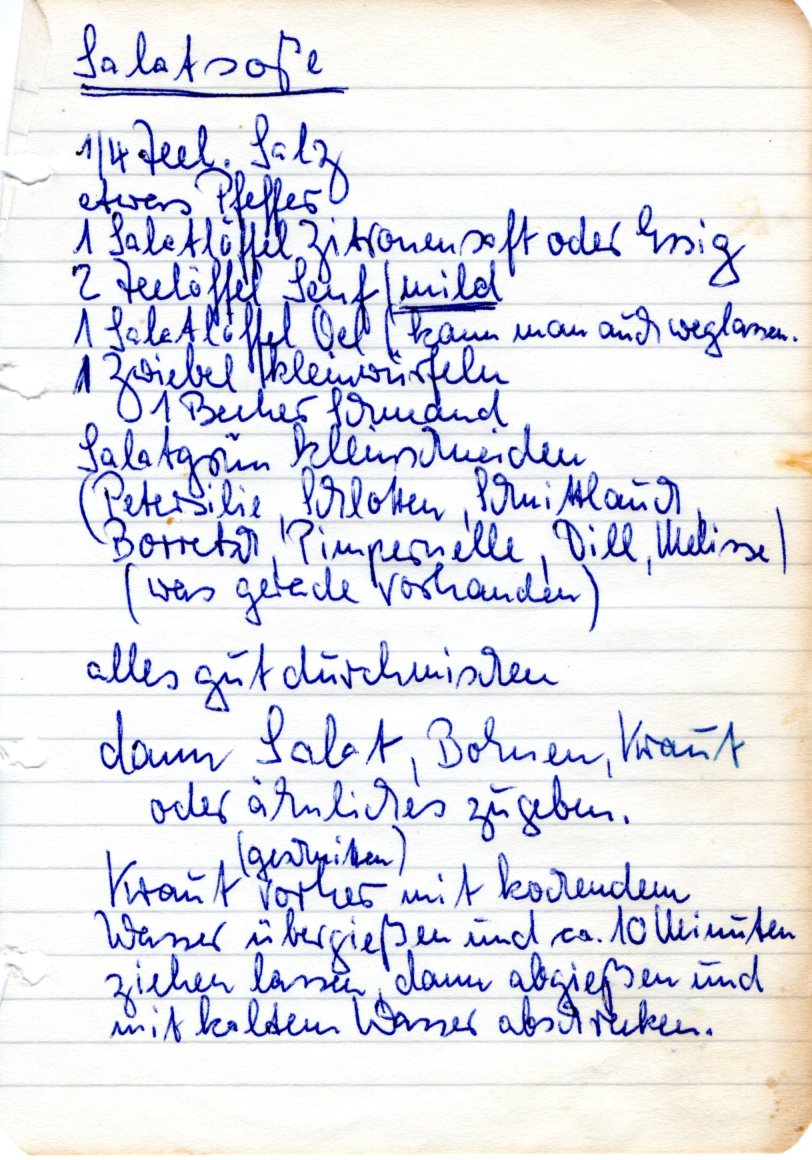 Salatsoße
1/4 Teel. Salz
etwas Pfeffer
1 Salatlöffel Zitronensaft oder Essig
2 Teelöffel Senf (mild
1 Salatlöffel Oel (kann man auch weglassen.
1 Zwiebel kleinwürfeln
1 Becher Schmand
Salatgrün kleinschneiden
(Petersilie, Schlotten, Schnittlauch,
Borretsch, Pimpernelle, Dill, Melisse)
(was gerade vorhanden)
alles gut durchmischen
dann Salat, Bohnen, Kraut
oder ähnliches zugeben.
(geschnitten)
Kraut vorher mit kochendem
Wasser übergießen und ca. 10 Minuten
ziehen lassen, dann abgießen und
mit kaltem Wasser abschrecken.